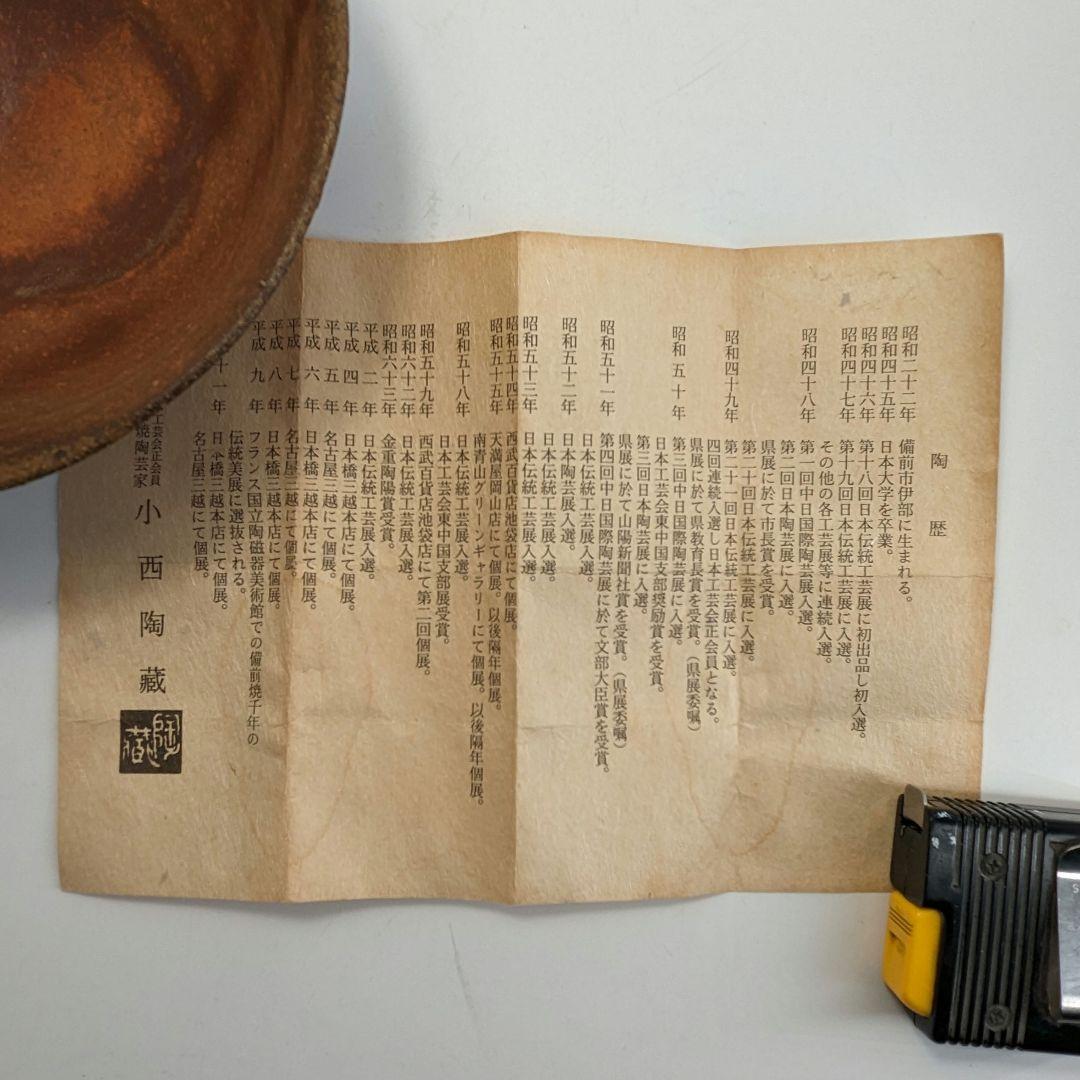 陶歴
昭和二十二年 備前市伊部に生まれる。
昭和四十五年 日本大学を卒業。
昭和四十六年 第十八回日本伝統工芸展に初出品し初入選。
昭和四十七年 第十九回日本伝統工芸展に入選。
その他の各工芸展等に連続入選。
昭和四十八年 第一回中日国際陶芸展入選。
第二回日本陶芸展に入選。
県展に於て市長賞を受賞。
第二十回日本伝統工芸展に入選。
昭和四十九年 第二十一回日本伝統工芸展に入選。
四回連続入選し日本工芸会正会員となる。
県展に於て県教育長賞を受賞。(県展委嘱)
昭和五十年 第三回中日国際陶芸展に入選。
日本工芸会東中国支部奨励賞を受賞。
第三回日本陶芸展に入選。
県展に於て山陽新聞社賞を受賞。(県展委嘱)
昭和五十一年 第四回中日国際陶芸展に於て文部大臣賞を受賞。
日本伝統工芸展入選。
昭和五十二年 日本陶芸展入選。
日本伝統工芸展入選。
昭和五十三年 日本伝統工芸展入選。
昭和五十四年 西武百貨店池袋店にて個展。
昭和五十五年 天満屋岡山店にて個展。以後隔年個展。
南青山グリーンギャラリーにて個展。以後隔年個展。
昭和五十八年 日本伝統工芸展入選。
日本工芸会東中国支部展受賞。
昭和五十九年 西武百貨店池袋店にて第二回個展。
昭和六十二年 日本伝統工芸展入選。
昭和六十三年 金重陶陽賞受賞。
平成二年 日本伝統工芸展入選。
平成四年 日本橋三越本店にて個展。
平成五年 名古屋三越にて個展。
平成六年 日本橋三越本店にて個展。
平成七年 名古屋三越にて個展。
平成八年 日本橋三越本店にて個展。
平成九年 フランス国立陶磁器美術館での備前焼千年の
伝統美展に選抜される。
十一年 日本橋三越本店にて個展。
名古屋三越にて個展。
工芸会正会員
焼陶芸家 小西陶藏
陶藏